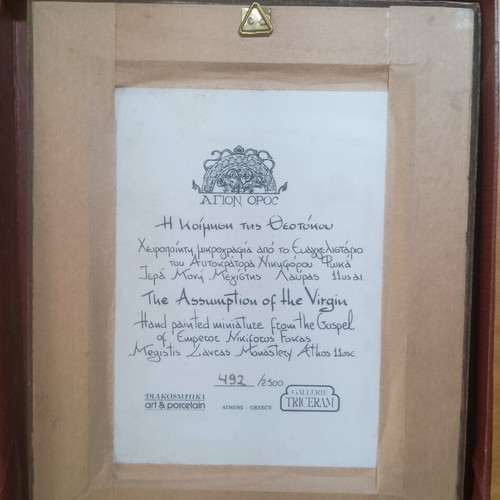 ΑΓΙΟΝ ΟΡΟΣ
Η Κοίμηση της Θεοτόκου
Χειροποίητη μικρογραφία από το Ευαγγελιστάριο
του Αυτοκράτορα Νικηφόρου Φωκά
Ιερά Μονή Μεγίστης Λαύρας 11ος αι.
The Assumption of the Virgin
Hand painted miniature from the Gospel
of Emperor Nikiforos Fokas
Megistis Lavras Monastery Athos 11os c.
492 /2500
ΔΙΑΚΟΣΜΗΤΙΚΗ
art & porcelain
ATHENS - GREECE
GALLERIE
TRICERAM